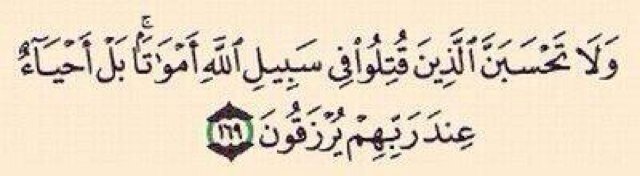 وَلَا تَحْسَبَنَّ ٱلَّذِينَ قُتِلُوا۟ فِى سَبِيلِ ٱللَّهِ أَمْوَٰتًۢا ۚ بَلْ أَحْيَآءٌ
عِندَ رَبِّهِمْ يُرْزَقُونَ ١٦٩